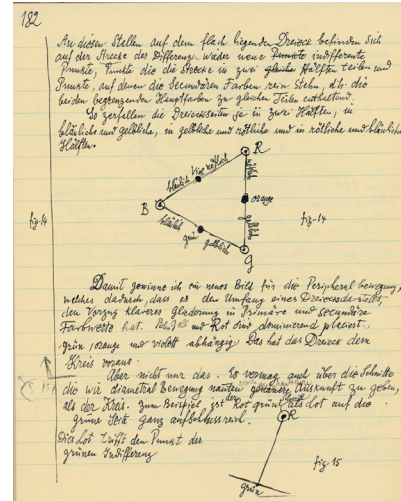 182
An diesen Stellen auf dem flach liegenden Dreieck befinden sich
auf der Strecke des Differenz. wieder neue Punkte indifferente
Punkte, Punkte die die Strecke in zwei gleiche Hälften teilen und
Punkte, auf denen die Secundären Farben rein stehn, d.h. die
beiden begrenzenden Hauptfarben zu gleichen Teilen enthaltend.
So zerfallen die Dreieckseiten je in zwei Hälften, in
bläuliche und gelbliche, in gelbliche und rötliche und in rötliche und bläuliche
Hälften.
R
bläulich violett rötlich
rötlich
fig. 14
B
orange
fig. 14
bläulich grün gelblich
gelblich
g
Damit gewinne ich ein neues Bild für die Peripheral bewegung,
welches dadurch, dass es den Umfang eines Dreiecks darstellt,
den Vorzug klarerer Gliederung in Primäre und secundäre
Farbwerte hat. Blau gelb und Rot sind dominierend placiert,
grün, orange und violett abhängig. Das hat das Dreieck dem
Kreis voraus.
Aber nicht nur das. Es vermag auch über die Schnitte
die wir diametral Bewegung nannten Auskunft zu geben,
als der Kreis. Zum Beispiel ist Rot grün als Lot auf die
grüne Seite ganz aufschlussreich.
R
Dies Lot trifft den Punkt der
grünen Indifferenz
fig. 15
grün